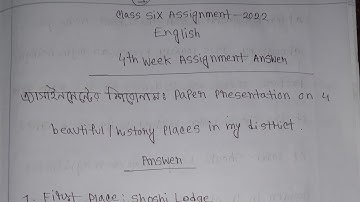 Class Six Assignment-2022
English
4th Week Assignment Answer
এ্যাসাইনমেন্টের শিরোনামঃ Paper Presentation on 4
beautiful/history places in my district.
Answer
1. First Place: Shoshi Lodge